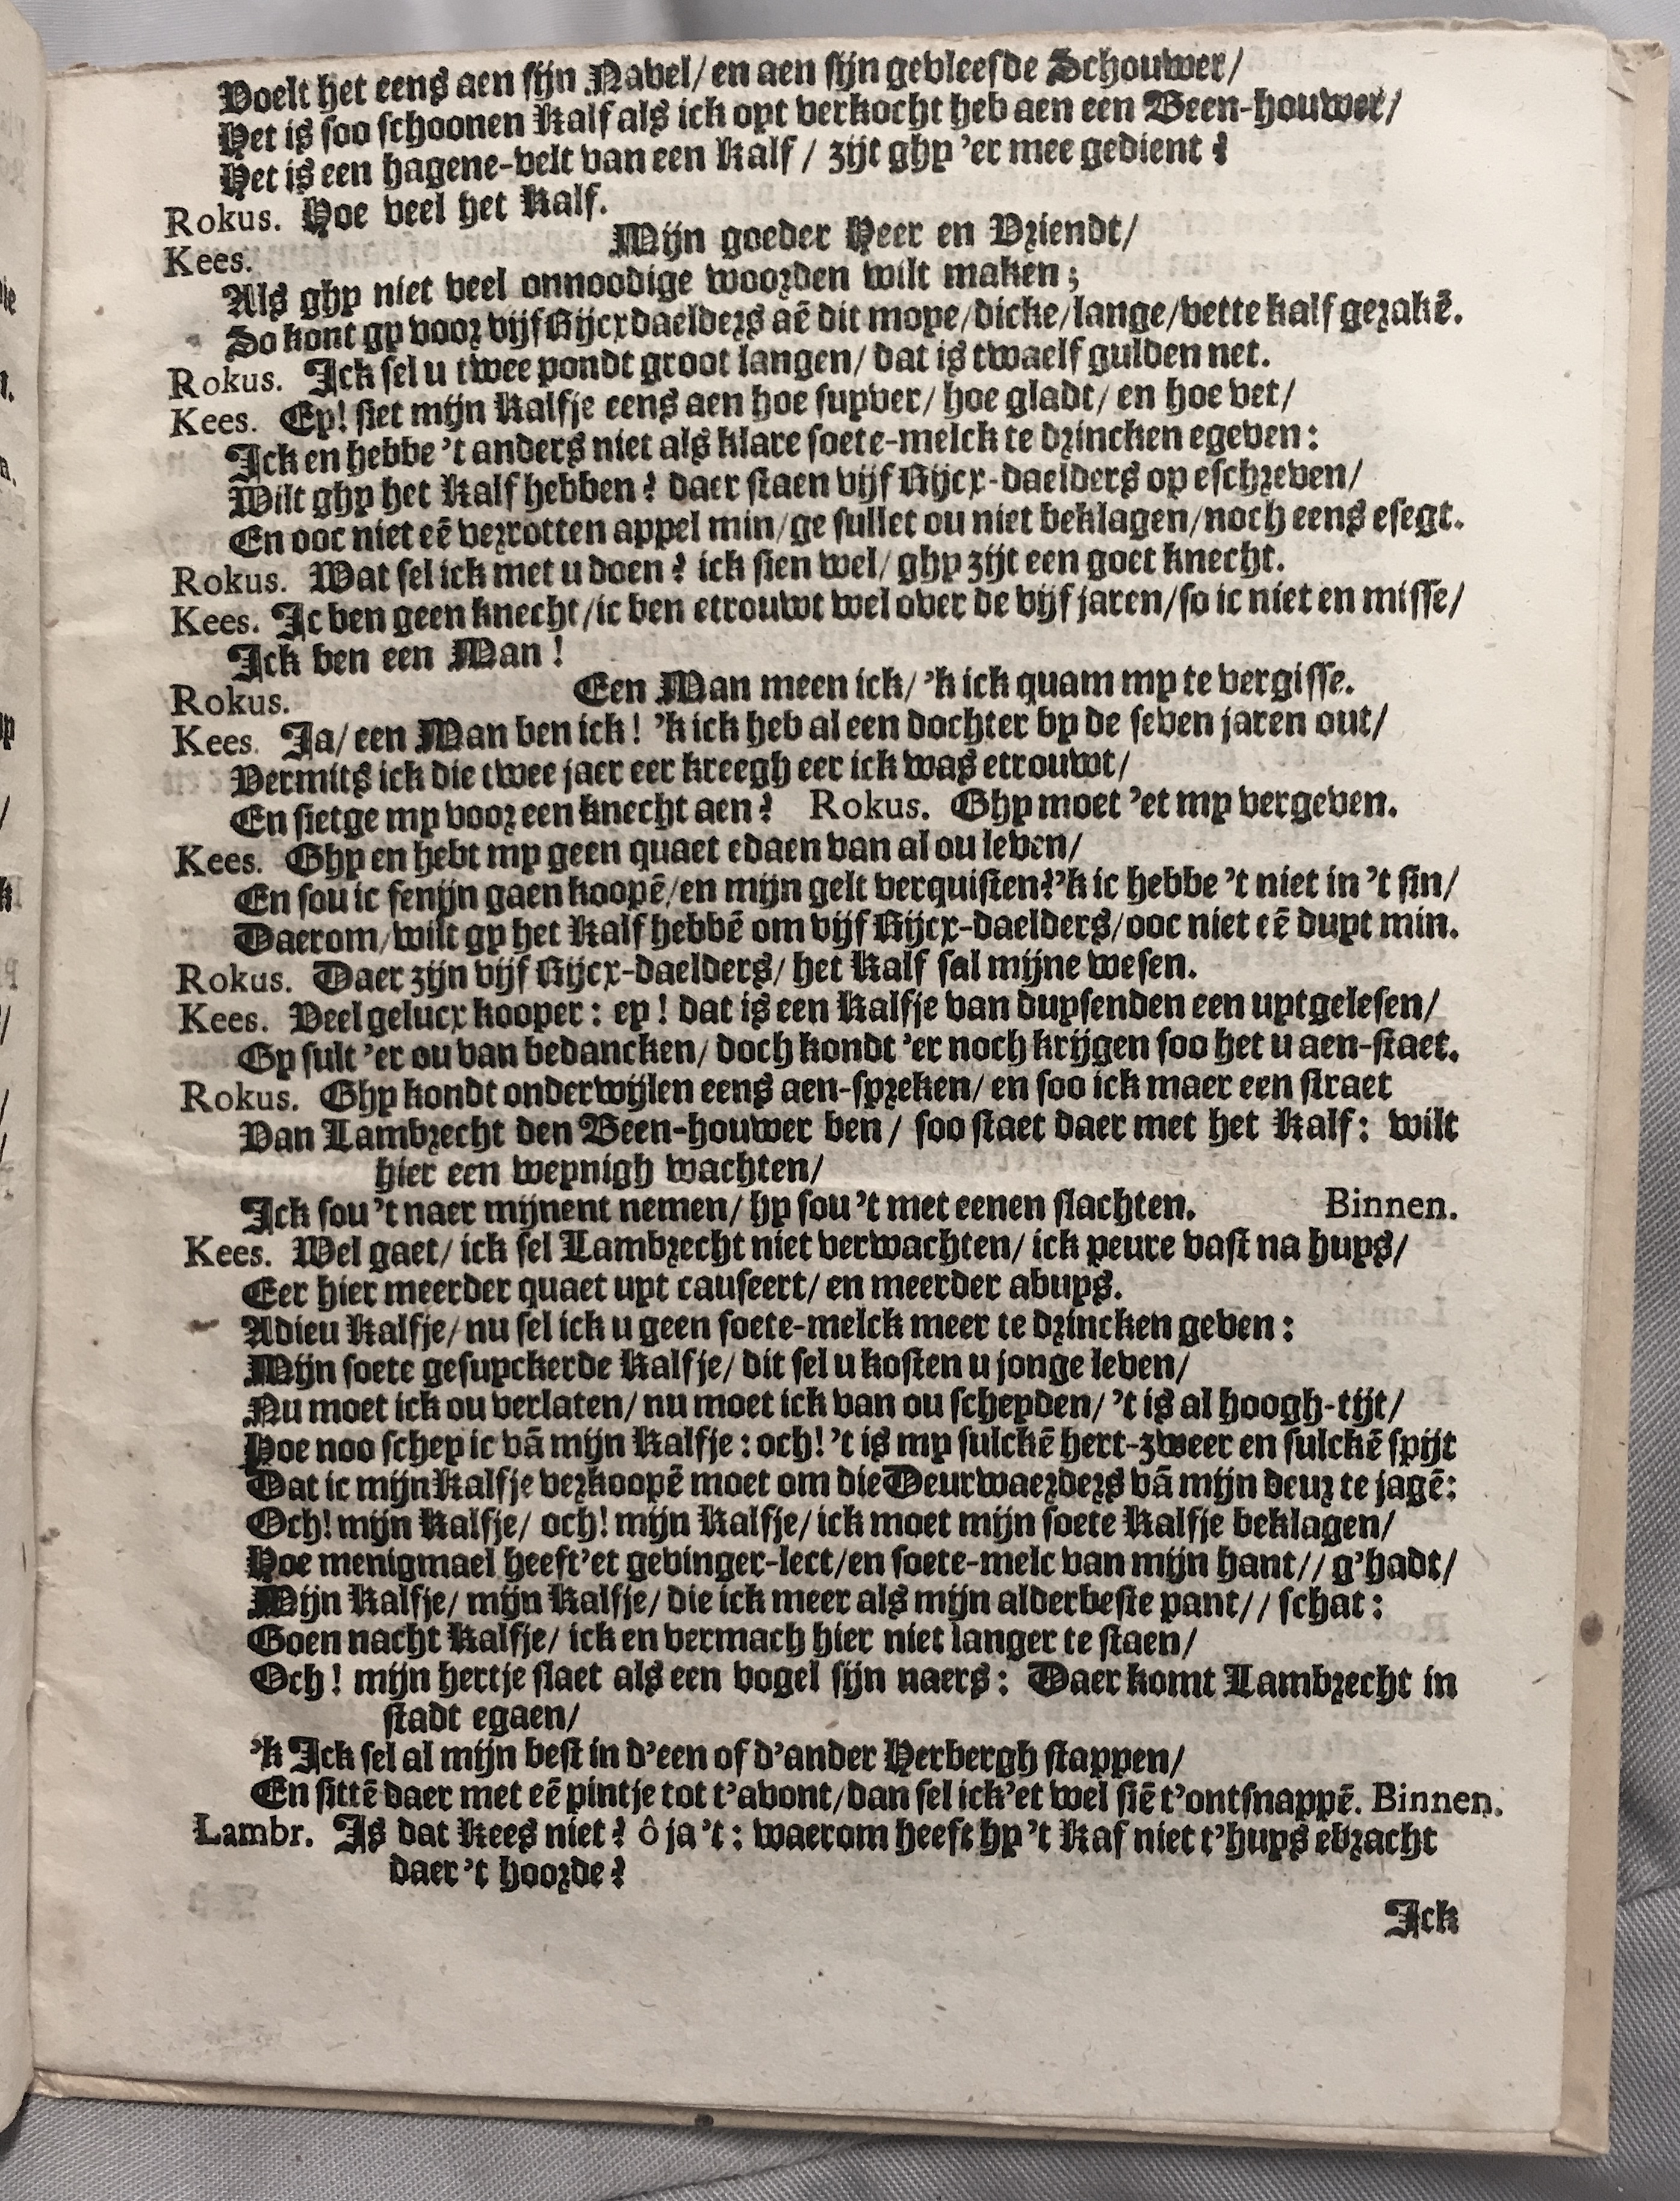 Voelt het eens aen sijn Navel/ en aen sijn gevleesde Schouwer/
Het is soo schoonen Kalf als ick opt verkocht heb aen een Been-houwer/
Het is een hagene-velt van een Kalf / zijt ghy 'er mee gedient?
Rokus. Hoe veel het Kalf.
Kees. Mijn goeder Heer en Vriendt/
Als ghy niet veel onnoodige woorden wilt maken;
So kont gy voor vijf Rijcxdaelders aē dit moye/dicke/lange/vette kalf gerakē.
Rokus. Ick sel u twee pondt groot langen/ dat is twaelf gulden net.
Kees. Ey! siet mijn Kalfje eens aen hoe suyver/ hoe gladt/ en hoe vet/
Ick en hebbe 't anders niet als klare soete-melck te drincken egeven:
Wilt ghy het Kalf hebben? daer staen vijf Rijcx-daelders op eschreven/
En ooc niet eē verrotten appel min/ge sullet ou niet beklagen/noch eens esegt.
Rokus. Wat sel ick met u doen? ick sien wel/ ghy zijt een goet knecht.
Kees. Ic ben geen knecht/ic ben etrouwt wel over de vijf jaren/so ic niet en misse/
Ick ben een Man!
Rokus. Een Man meen ick/ 'k ick quam my te vergisse.
Kees. Ja/ een Man ben ick! 'k ick heb al een dochter by de seven jaren out/
Vermits ick die twee jaer eer kreegh eer ick was etrouwt/
En sietge my voor een knecht aen? Rokus. Ghy moet 'et my vergeven.
Kees. Ghy en hebt my geen quaet edaen van al ou leven/
En sou ic fenijn gaen koopē/en mijn gelt verquisten?'k ic hebbe 't niet in 't sin/
Daerom/wilt gy het Kalf hebbē om vijf Rijcx-daelders/ooc niet eē duyt min.
Rokus. Daer zijn vijf Rijcx-daelders/ het Kalf sal mijne wesen.
Kees. Veel gelucx kooper: ey! dat is een Kalfje van duysenden een uytgelesen/
Gy sult 'er ou van bedancken/ doch kondt 'er noch krijgen soo het u aen-staet.
Rokus. Ghy kondt onderwijlen eens aen-spreken/ en soo ick maer een straet
Van Lambrecht den Been-houwer ben/ soo staet daer met het Kalf: wilt
hier een weynigh wachten/
Ick sou 't naer mijnent nemen/ hy sou 't met eenen slachten. Binnen.
Kees. Wel gaet/ ick sel Lambrecht niet verwachten/ ick peure vast na huys/
Eer hier meerder quaet uyt causeert/ en meerder abuys.
Adieu Kalfje/ nu sel ick u geen soete-melck meer te drincken geven:
Mijn soete gesuyckerde Kalfje/ dit sel u kosten u jonge leven/
Nu moet ick ou verlaten/ nu moet ick van ou scheyden/ 't is al hoogh-tijt/
Hoe noo schey ic vā mijn Kalfje: och! 't is my sulckē hert-zweer en sulckē spijt
Dat ic mijn Kalfje verkoopē moet om die Deurwaerders vā mijn deur te jagē:
Och! mijn Kalfje/ och! mijn Kalfje/ ick moet mijn soete Kalfje beklagen/
Hoe menigmael heeft'et gevinger-lect/en soete-melc van mijn hant// g'hadt/
Mijn Kalfje/ mijn Kalfje/ die ick meer als mijn alderbeste pant// schat:
Goen nacht Kalfje/ ick en vermach hier niet langer te staen/
Och! mijn hertje slaet als een vogel sijn naers: Daer komt Lambrecht in
stadt egaen/
'k Ick sel al mijn best in d'een of d'ander Herbergh stappen/
En sittē daer met eē pintje tot t'avont/dan sel ick'et wel siē t'ontsnappē. Binnen.
Lambr. Is dat Kees niet? ô ja 't: waerom heeft hy 't Kaf niet t'huys ebracht
daer 't hoorde?
Ick